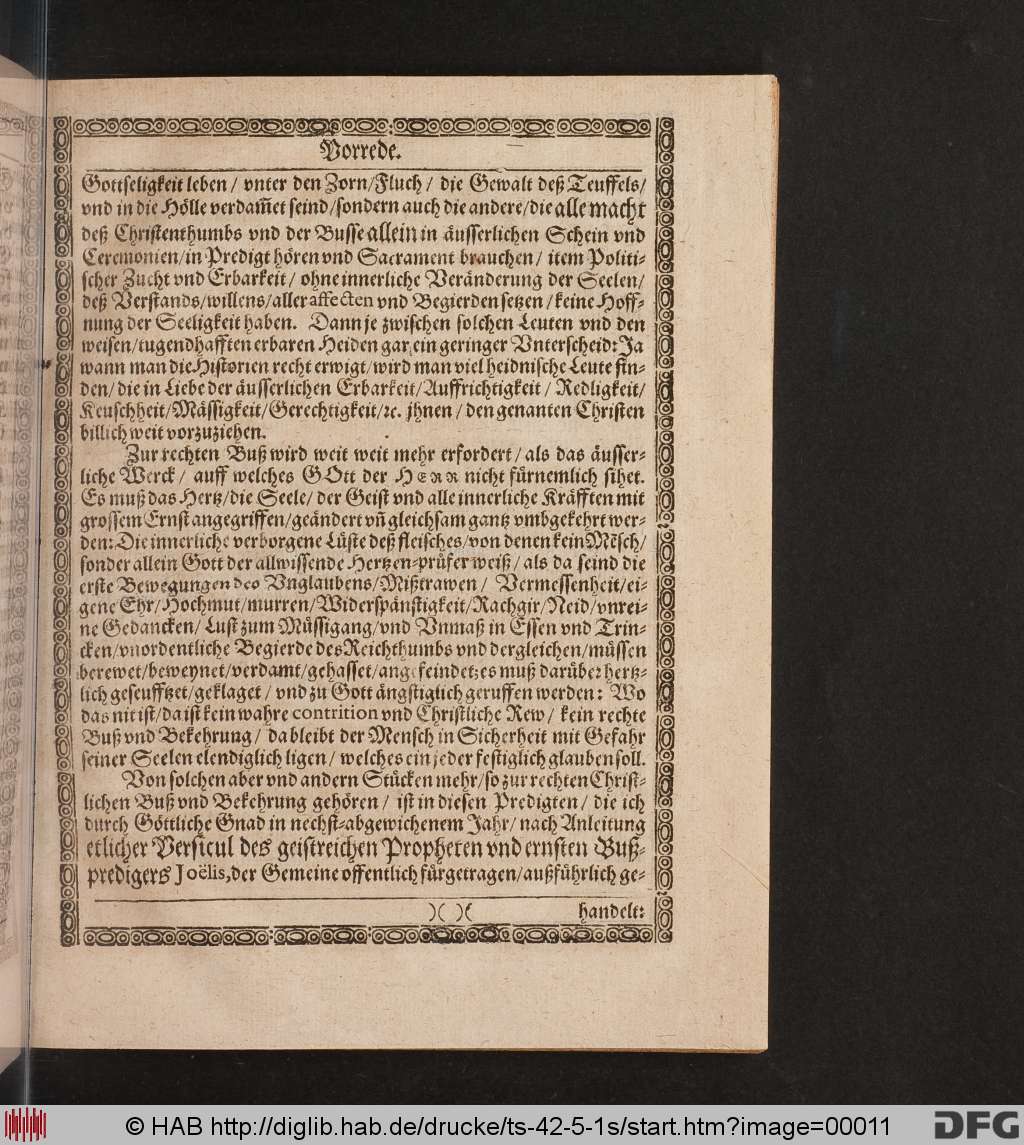 Vorrede.
Gottseligkeit leben / vnter den Zorn/Fluch / die Gewalt deß Teuffels/
vnd in die Hölle verdam̃et seind/sondern auch die andere/die alle macht
deß Christenthumbs vnd der Busse allein in äusserlichen Schein vnd
Ceremonien/in Predigt hören vnd Sacrament brauchen / item Politi-
scher Zucht vnd Erbarkeit / ohne innerliche Veränderung der Seelen/
deß Verstands/willens/aller affecten vnd Begierden setzen / keine Hoff-
nung der Seeligkeit haben. Dann je zwischen solchen Leuten vnd den
weisen/tugendhafften erbaren Heiden gar ein geringer Vnterscheid: Ja
wann man die Historien recht erwigt/wird man viel heidnische Leute fin-
den/die in Liebe der äusserlichen Erbarkeit/Auffrichtigkeit / Redligkeit/
Keuschheit/Mässigkeit/Gerechtigkeit/ꝛc. jhnen / den genanten Christen
billich weit vorzuziehen.
Zur rechten Buß wird weit weit mehr erfordert / als das äusser-
liche Werck / auff welches GOtt der HERR nicht fürnemlich sihet.
Es muß das Hertz/die Seele/ der Geist vnd alle innerliche Kräfften mit
grossem Ernst angegriffen/geändert vñ gleichsam gantz vmbgekehrt wer-
den: Die innerliche verborgene Lüste deß fleisches/von denen kein Mẽsch/
sonder allein Gott der allwissende Hertzen-prüfer weiß / als da seind die
erste Bewegungen des Vnglaubens/Mißtrawen / Vermessenheit/ei-
gene Ehr/Hochmut/murren/Widerspänstigkeit/Rachgir/Neid/vnrei-
ne Gedancken/ Lust zum Müssigang/vnd Vnmaß in Essen vnd Trin-
cken/vnordentliche Begierde des Reichthumbs vnd dergleichen/müssen
berewet/beweynet/verdamt/gehasset/angefeindet:es muß darüber hertz-
lich geseufftzet/geklaget / vnd zu Gott ängstiglich geruffen werden: Wo
das nit ist/da ist kein wahre contrition vnd Christliche Rew / kein rechte
Buß vnd Bekehrung / da bleibt der Mensch in Sicherheit mit Gefahr
seiner Seelen elendiglich ligen / welches ein jeder festiglich glauben soll.
Von solchen aber vnd andern Stücken mehr/so zur rechten Christ-
lichen Buß vnd Bekehrung gehören / ist in diesen Predigten / die ich
durch Göttliche Gnad in nechst-abgewichenem Jahr/ nach Anleitung
etlicher Versicul des geistreichen Propheten vnd ernsten Buß-
predigers Joëlis,der Gemeine offentlich fürgetragen/außführlich ge-
)( )( handelt:
© HAB http://diglib.hab.de/drucke/ts-42-5-1s/start.htm?image=00011
DFG